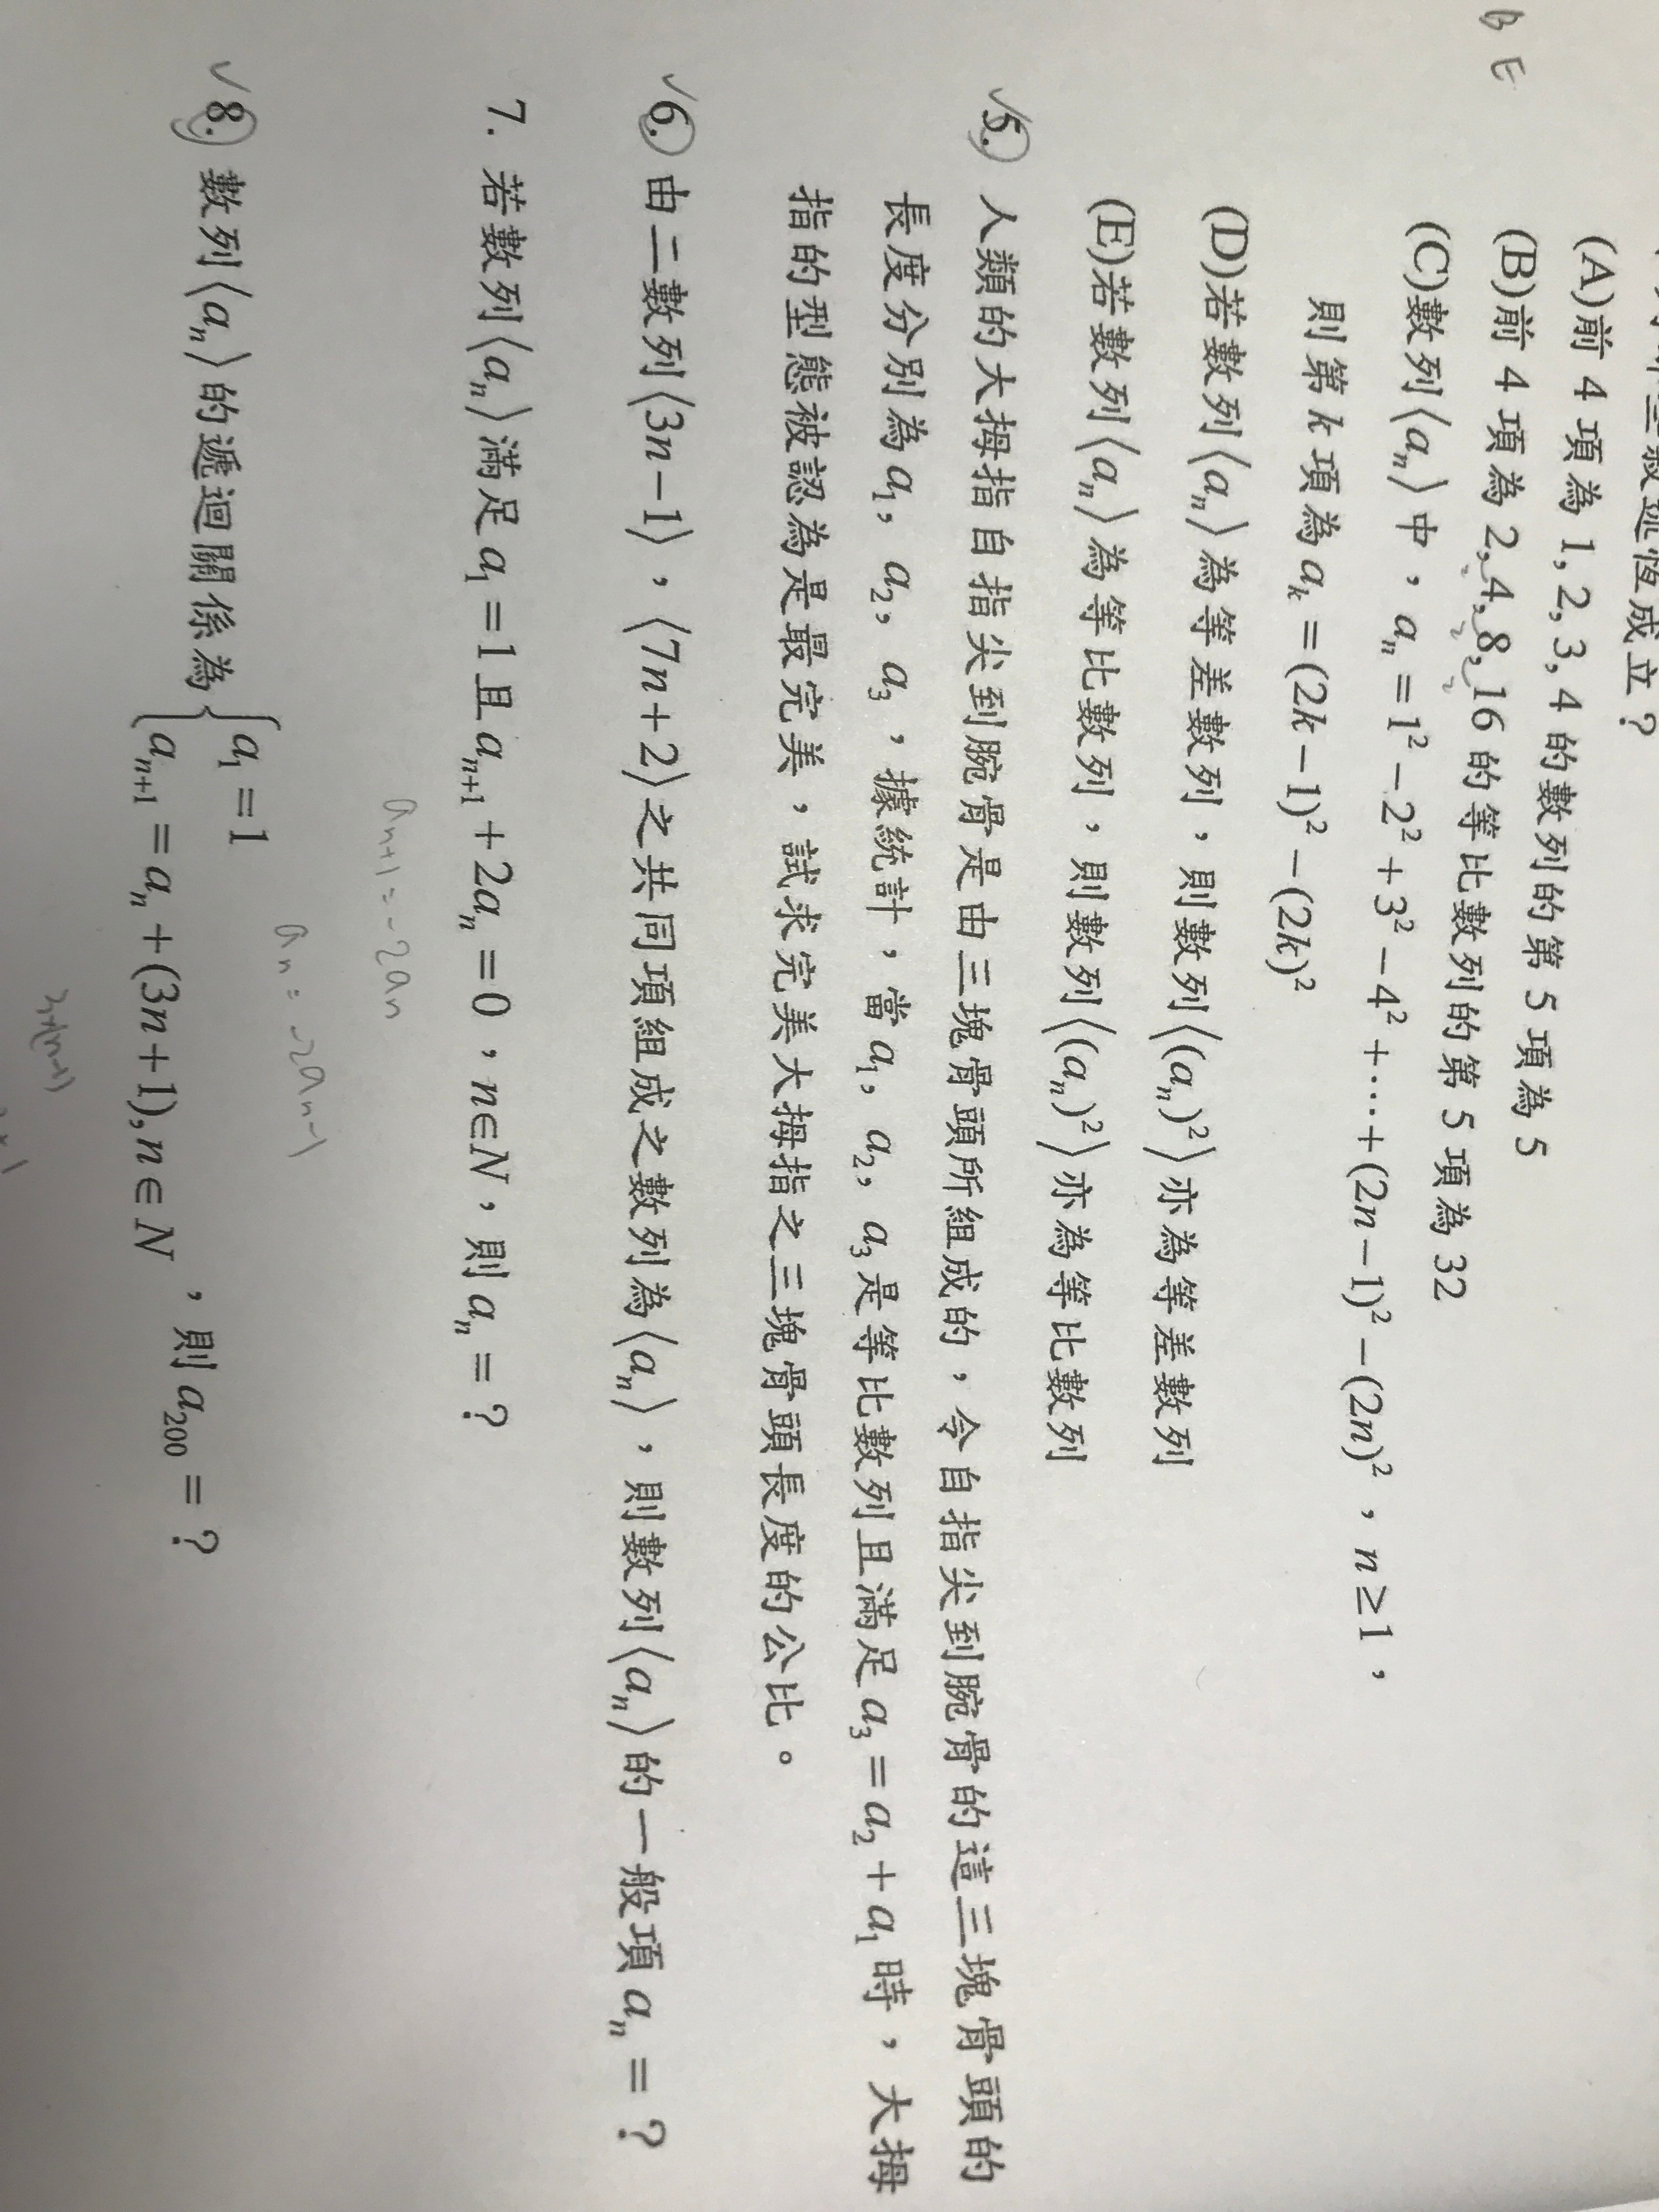 敘述恆成立？
(A)前 4 項為 1, 2, 3, 4 的數列的第 5 項為 5
B E
(B)前 4 項為 2, 4, 8, 16 的等比數列的第 5 項為 32
2 2 2
(C)數列⟨aₙ⟩中，aₙ = 1² − 2² + 3² − 4² + ⋯ + (2n−1)² − (2n)²，n ≥ 1，
則第 k 項為 aₖ = (2k−1)² − (2k)²
(D)若數列⟨aₙ⟩為等差數列，則數列⟨(aₙ)²⟩亦為等差數列
(E)若數列⟨aₙ⟩為等比數列，則數列⟨(aₙ)²⟩亦為等比數列
✓5. 人類的大拇指自指尖到腕骨是由三塊骨頭所組成的，令自指尖到腕骨的這三塊骨頭的
長度分別為 a₁, a₂, a₃，據統計，當 a₁, a₂, a₃ 是等比數列且滿足 a₃ = a₂ + a₁ 時，大拇
指的型態被認為是最完美，試求完美大拇指之三塊骨頭長度的公比。
✓6. 由二數列⟨3n−1⟩，⟨7n+2⟩之共同項組成之數列為⟨aₙ⟩，則數列⟨aₙ⟩的一般項 aₙ = ？
7. 若數列⟨aₙ⟩滿足 a₁ = 1 且 aₙ₊₁ + 2aₙ = 0，n∈N，則 aₙ = ？
aₙ₊₁ = −2aₙ
aₙ = −2aₙ₋₁
✓8. 數列⟨aₙ⟩的遞迴關係為 { a₁ = 1
aₙ₊₁ = aₙ + (3n+1), n ∈ N ，則 a₂₀₀ = ？